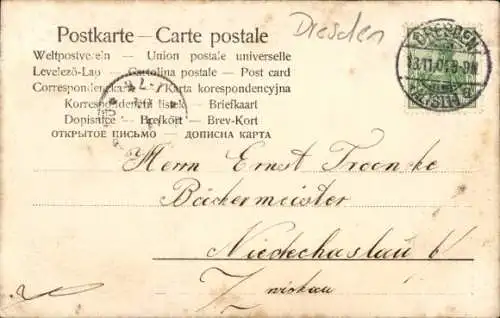 Dresden
Postkarte – Carte postale
Weltpostverein – Union postale universelle
Levelező-Lap – Cartolina postale – Post card
Correspondenzkarte – Karta korespondencyjna
Korrespondenční lístek – Briefkaart
Dopisnice – Brefkort – Brev-Kort
ОТКРЫТОЕ ПИСЬМО – ДОПИСНА КАРТА
DRESDEN
Herrn Ernst
Bäckermeister
Niederhaslau b/
Zwickau